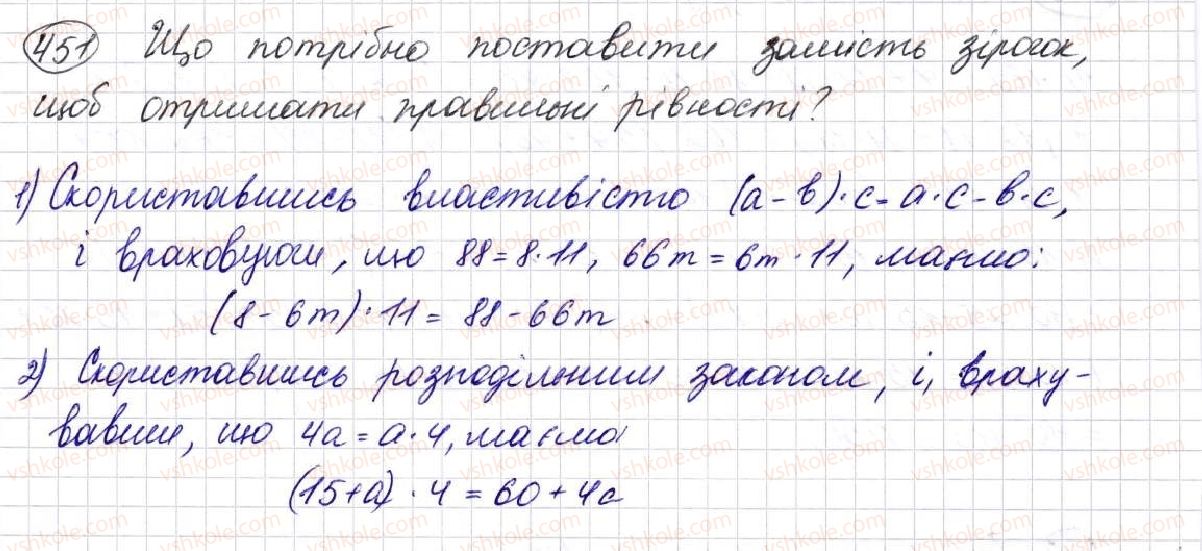 451 Що потрібно поставити замість зірочок,
щоб отримати правильні рівності?
1) Скориставшись властивістю (а-в)·с=а·с-в·с,
і враховуючи, що 88=8·11, 66m=6m·11, маємо:
(8-6m)·11=88-66m
2) Скориставшись розподільним законом, і, враху-
вавши, що 4а=а·4, маємо
(15+а)·4=60+4а